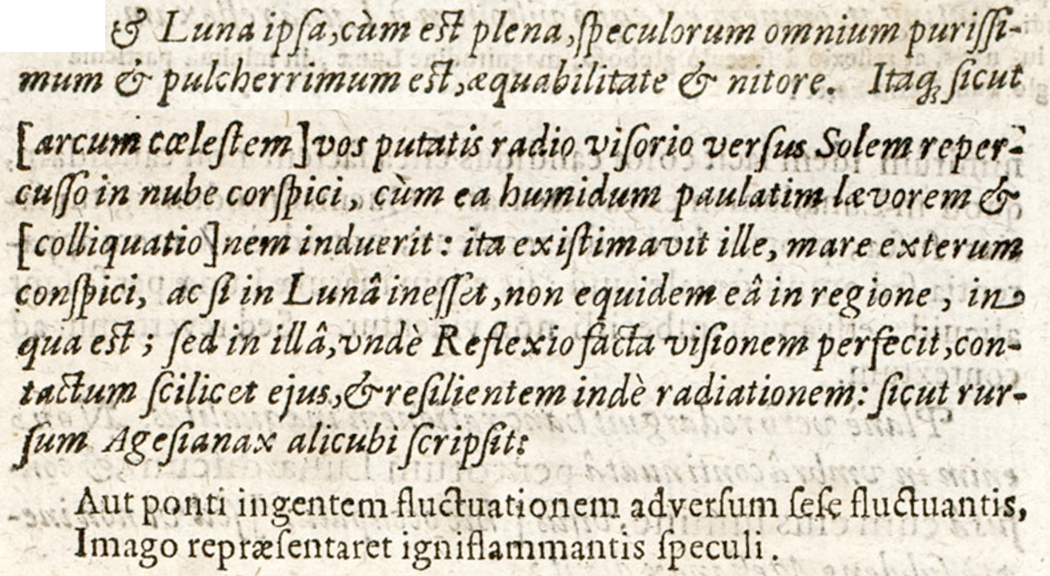 & Luna ipſa,cùm eſt plena,ſpeculorum omnium puriſſi-
mum & pulcherrimum eſt,æquabilitate & nitore. Itaq; ſicut
[arcum cœleſtem]vos putatis radio viſorio verſus Solem reper-
cuſſo in nube corſpici, cùm ea humidum paulatim lævorem &
[colliquatio]nem induerit: ita exiſtimavit ille, mare exterum
conſpici, ac ſi in Lunâ ineſſet,non equidem eâ in regione, in
qua eſt; ſed in illâ,vndè Reflexio facta viſionem perfecit,con-
tactum ſcilicet ejus,& reſilientem indè radiationem: ſicut rur-
ſum Ageſianax alicubi ſcripſit:
Aut ponti ingentem fluctuationem adverſum ſeſe fluctuantis,
Imago repræſentaret igniflammantis ſpeculi.